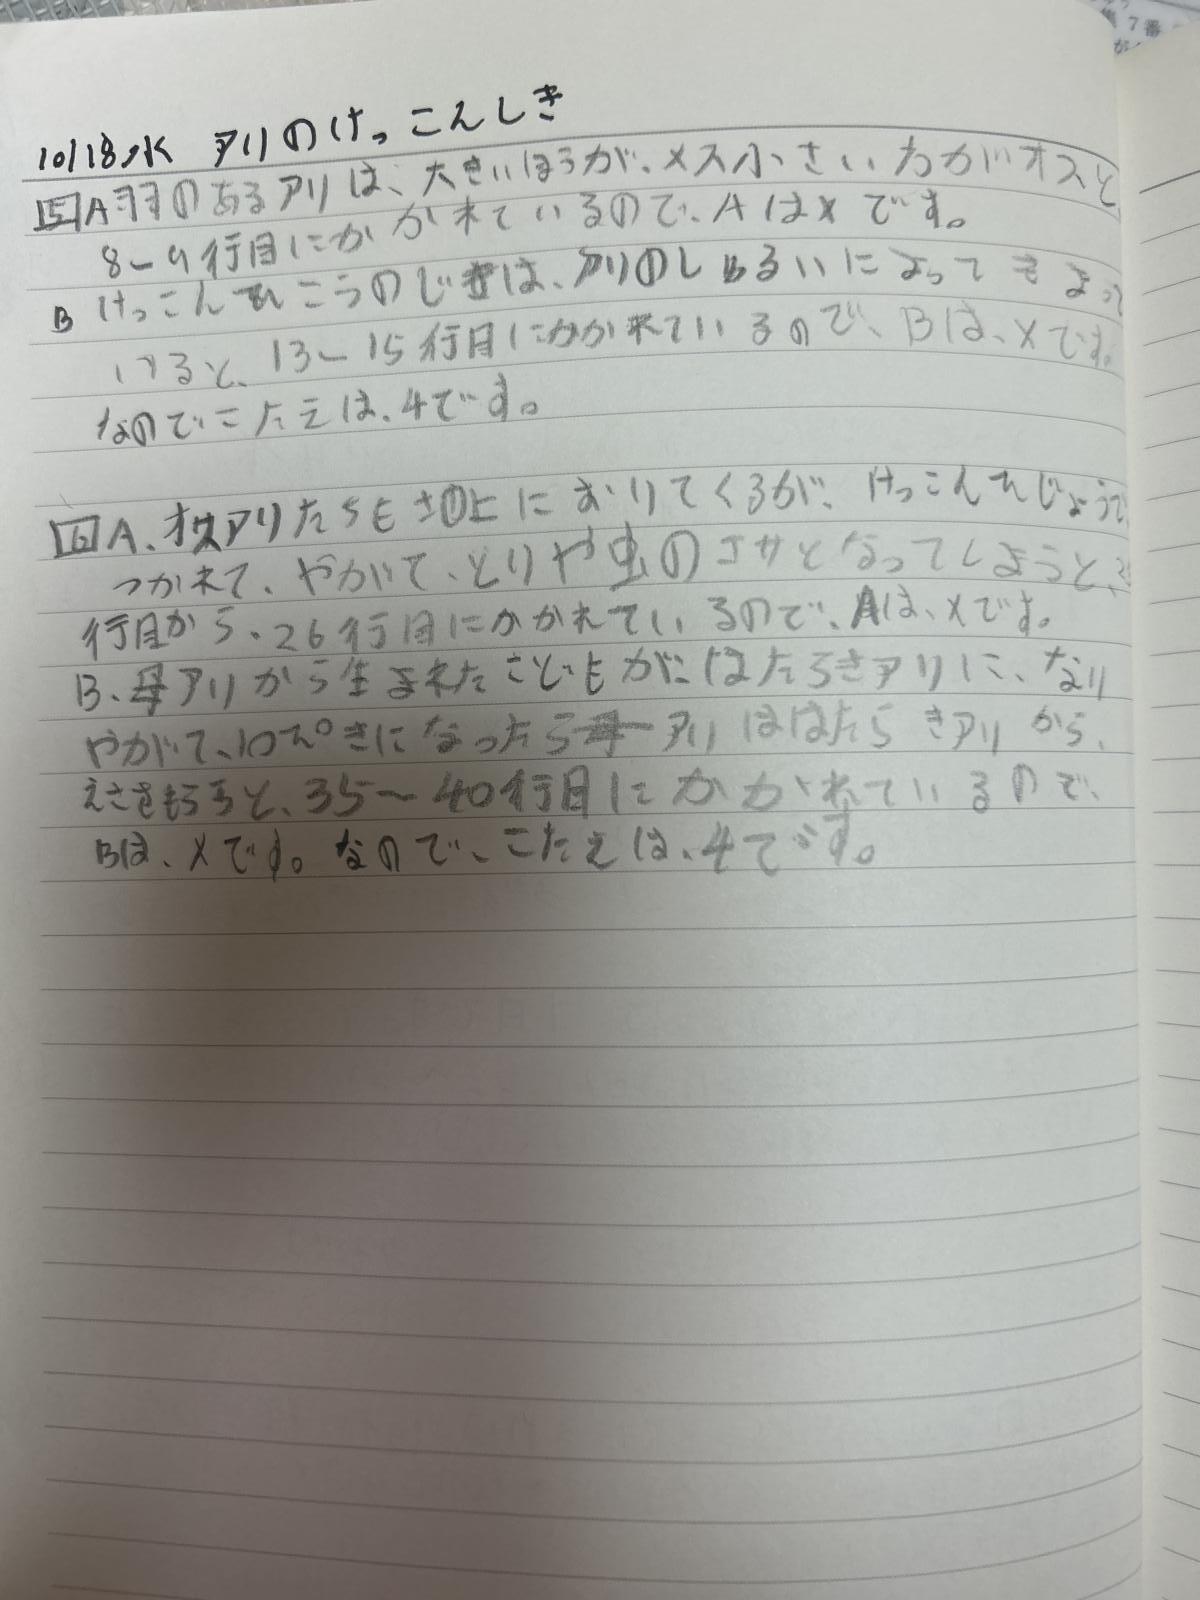 10/18水 アリのけっこんしき
5 A 羽のあるアリは、大きいほうが、メス小さい方がオスと
8〜9行目にかかれているので、Aは×です。
B けっこんひこうのじきは、アリのしゅるいによってきまって
いると、13〜15行目にかかれているので、Bは、×です。
なのでこたえは、4です。
6 A、オスアリたちも地上におりてくるが、けっこんひじょうで
つかれて、やがて、とりや虫のエサとなってしまうと、2
行目から、26行目にかかれているので、Aは、×です。
B、母アリから生まれたこどもがはたらきアリに、なり
やがて、10ぴきになったら母アリははたらきアリから、
えさをもらうと、35〜40行目にかかれているので、
Bは、×です。なので、こたえは、4です。
7番